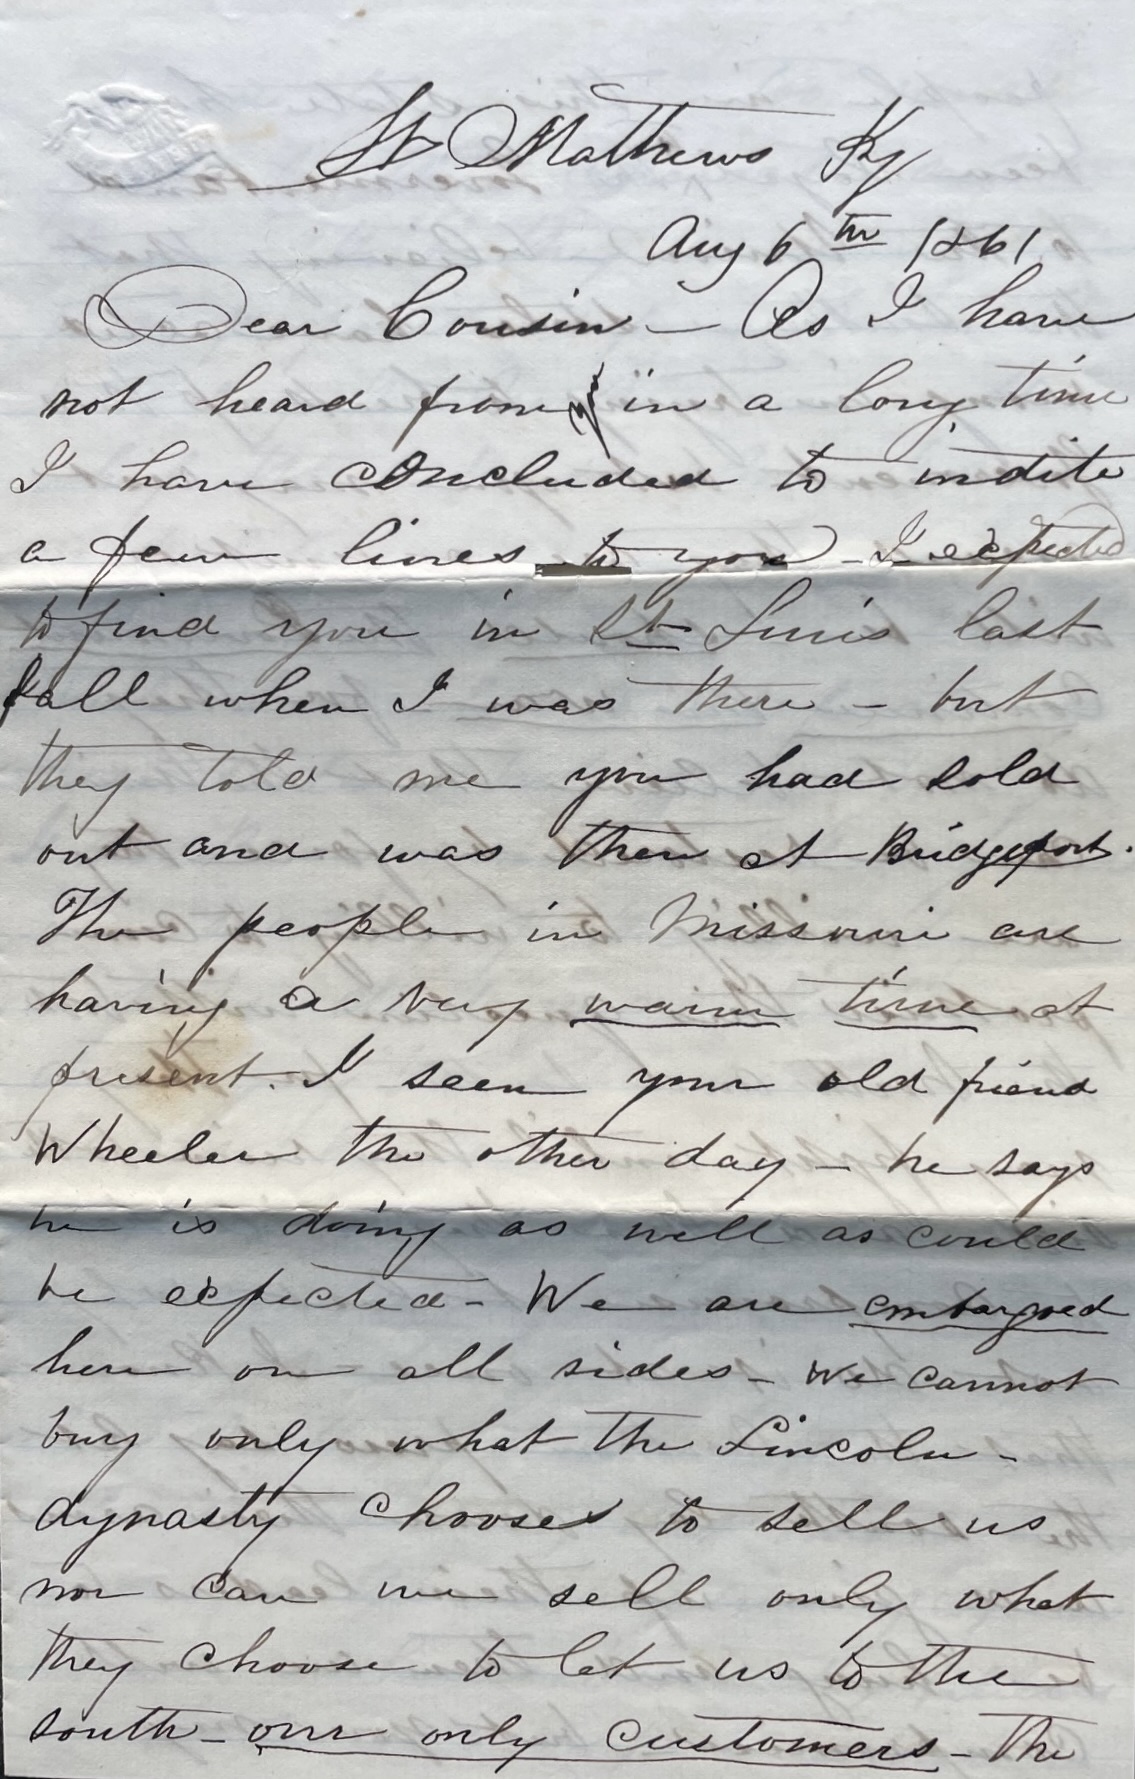 St Mathews Ky
Aug 6th 1861
Dear Cousin - As I have
not heard from you in a long time
I have concluded to indite
a few lines to you - I expected
to find you in St Luis last
fall when I was there - but
they told me you had sold
out and was then at Bridgeport.
The people in Missouri are
having a very warm time at
present. I seen your old friend
Wheeler the other day - he says
he is doing as well as could
be expected - We are embargoed
here on all sides - We cannot
buy only what the Lincoln -
dynasty chooses to sell us
nor can we sell only what
they choose to let us to the
south - our only customers - The